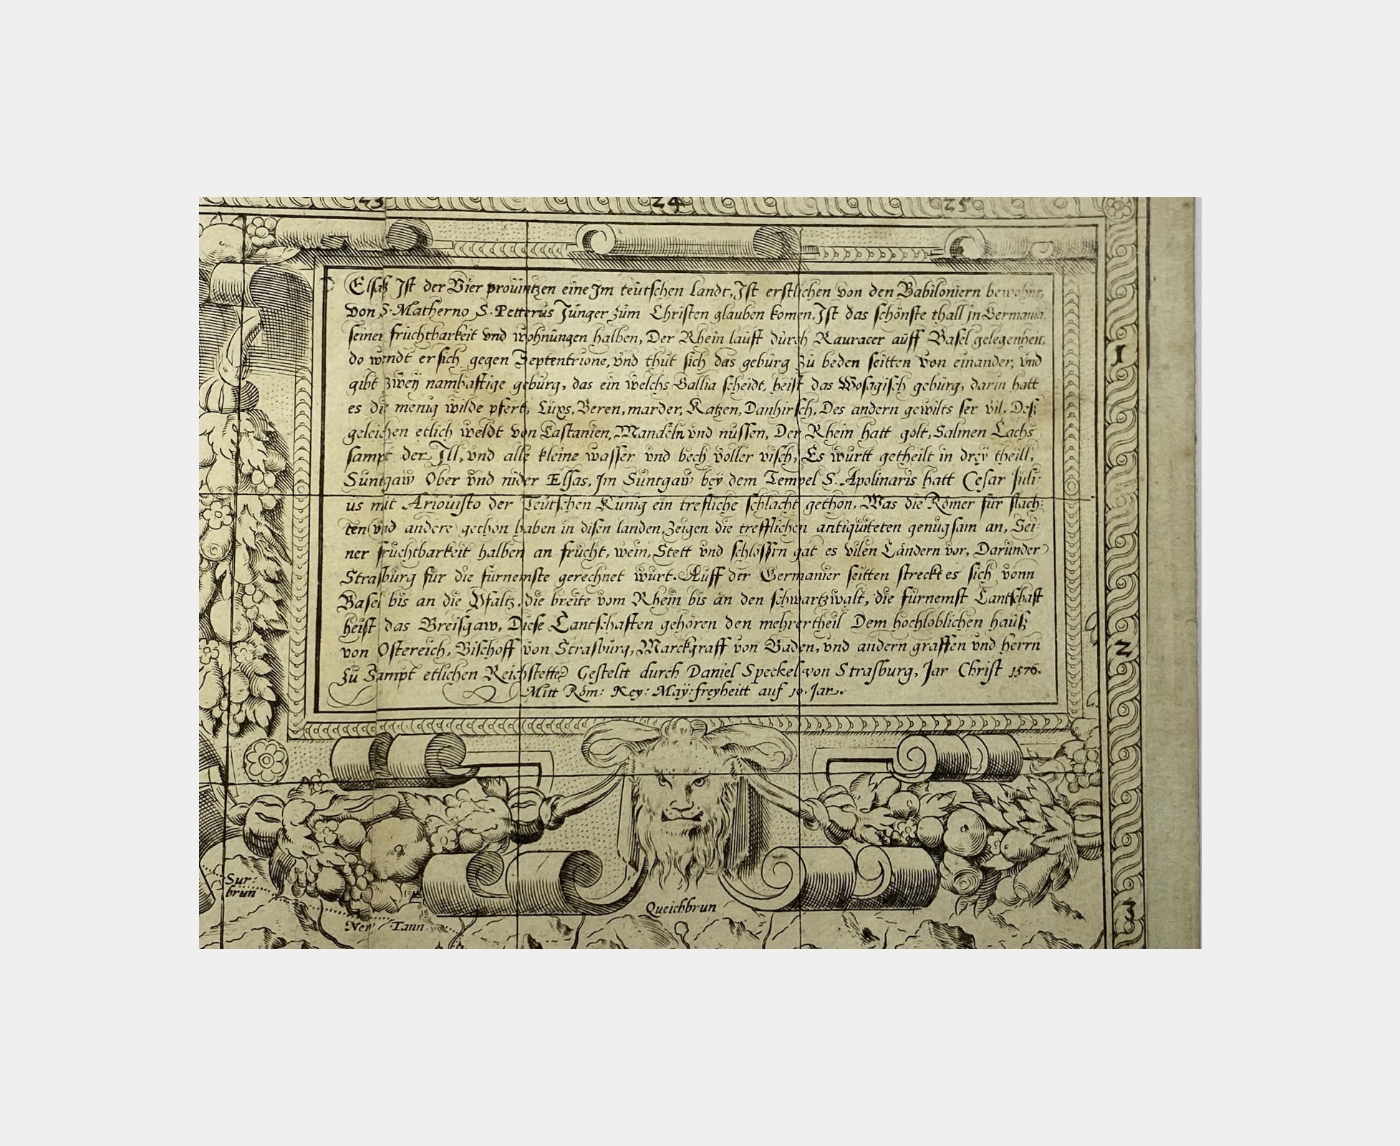 23 24 25
Elsas Ist der Vier prouintzen eine Im teütschen Landt, Ist erstlichen von den Babiloniern bewohnt,
von S. Matherno S. Petterus Jünger züm Christen glauben komen, Ist das schönste thall in Germania
seiner früchtbarkeit vnd wohnüngen halben, Der Rhein laüft dürch Rauracer aüff Basel gelegenheit,
do wendt er sich gegen Septentrione, vnd thüt sich das gebürg zü beden seitten von einander, vnd
gibt zweÿ namhaftige gebürg, das ein welchs Gallia scheidt, heist das Wosagisch gebürg, darin hatt
es die menig wilde pfert, Lüxs, Beren, marder, Katzen, Danhirsch, Des andern gewilts ser vil. Deß
geleichen etlich weldt von Castanien, Mandeln vnd nüssen, Der Rhein hatt golt, Salmen Lachs
sampt der Ill, vnd alle kleine wasser vnd bech voller visch, Es württ getheilt in dreÿ theill,
Süntgaw Ober vnd nider Elsas, Jm Süntgaw beÿ dem Tempel S. Apolinaris hatt Cesar Juli-
us mit Ariouisto der Teütschen Künig ein trefliche schlacht gethon, Was die Römer für slach-
ten vnd andere gethon haben in disen landen, Zeigen die trefflichen antiquiteten genügsam an, Sei-
ner früchtbarkeit halben an frücht, wein, Stett vnd schlössern gat es vilen Ländern vor, Daründer
Strasbürg für die fürnemste gerechnet würt. Aüff der Germanier seitten streckt es sich vonn
Basel bis an die Pfaltz, die breite vom Rhein bis an den schwartzwalt, die fürnemst Lantschaft
heist das Breisgaw, Diese Lantschaften gehören den mehrertheil Dem hochloblichen haüß
von Ostereich, Bischoff von Strasbürg, Marckgraff von Baden, vnd andern graffen vnd herrn
zü Sampt etlichen Reichstette, Gestelt dürch Daniel Speckel von Strasbürg, Jar Christ 1576.
Mitt Röm: Key: May: freyheitt auf 10 Jar.
1
2
3
Sur:
brün
New Tann
Queichbrun